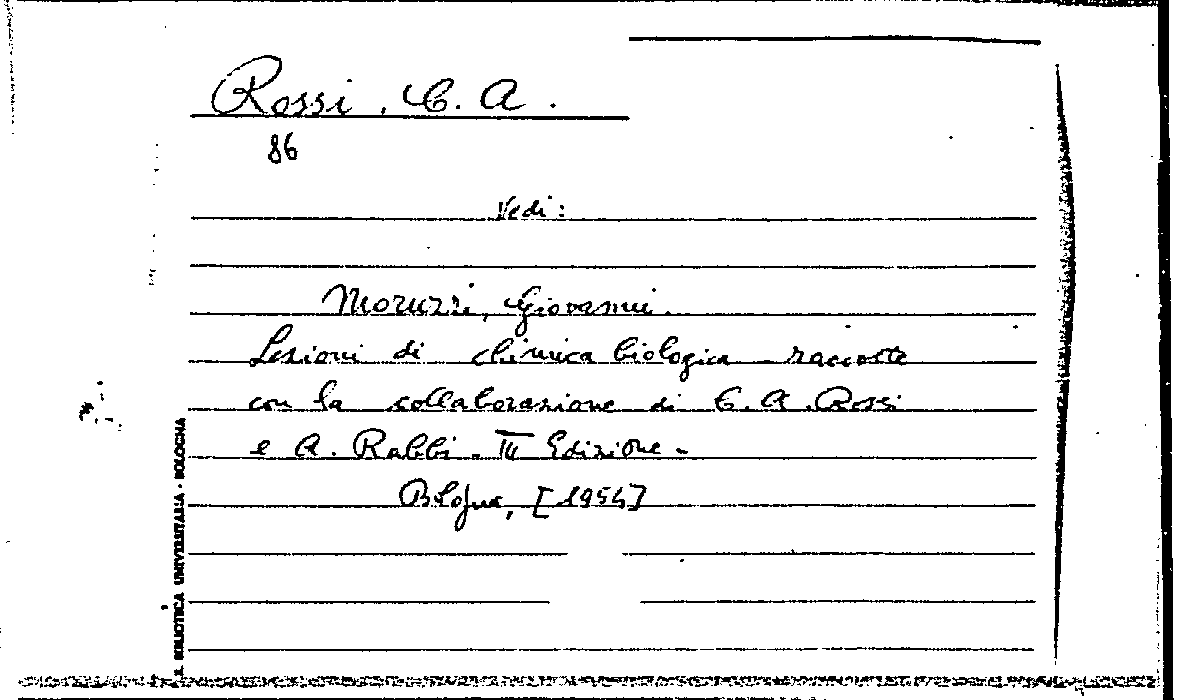 Rossi, C. A.
86
Vedi:
Moruzzi, Giovanni.
Lezioni di chimica biologica - raccolte
con la collaborazione di C. A. Rossi
e A. Rabbi - III Edizione -
Bologna, [1954]
R. BIBLIOTECA UNIVERSITARIA - BOLOGNA